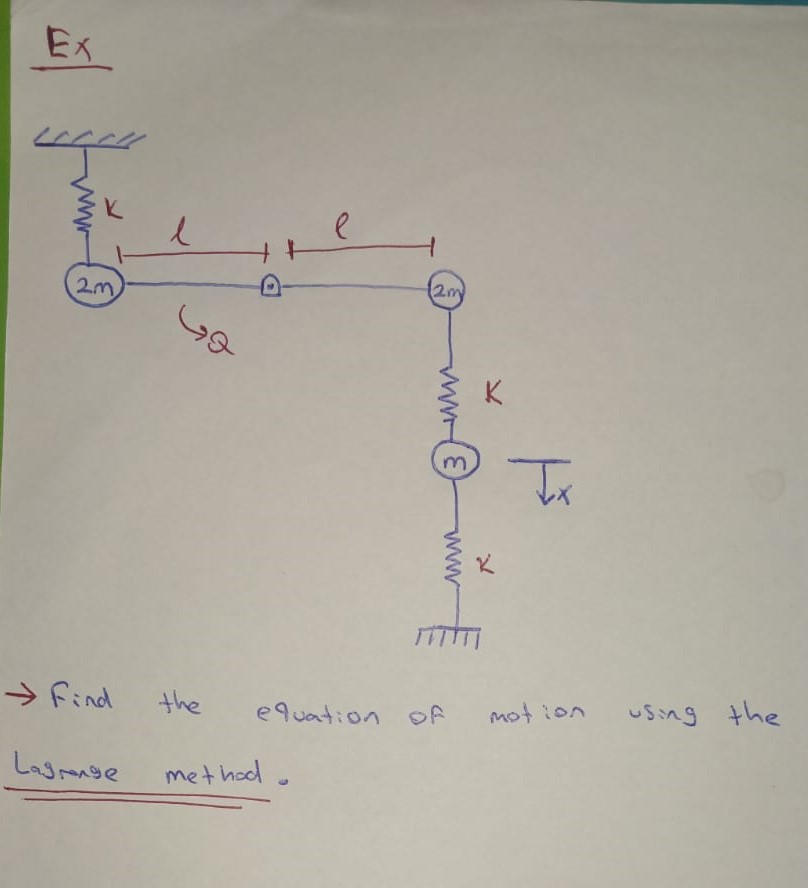 Ex
K
l l
2m 2m
Q
K
m
x
K
→ Find the equation of motion using the
Lagrange method.